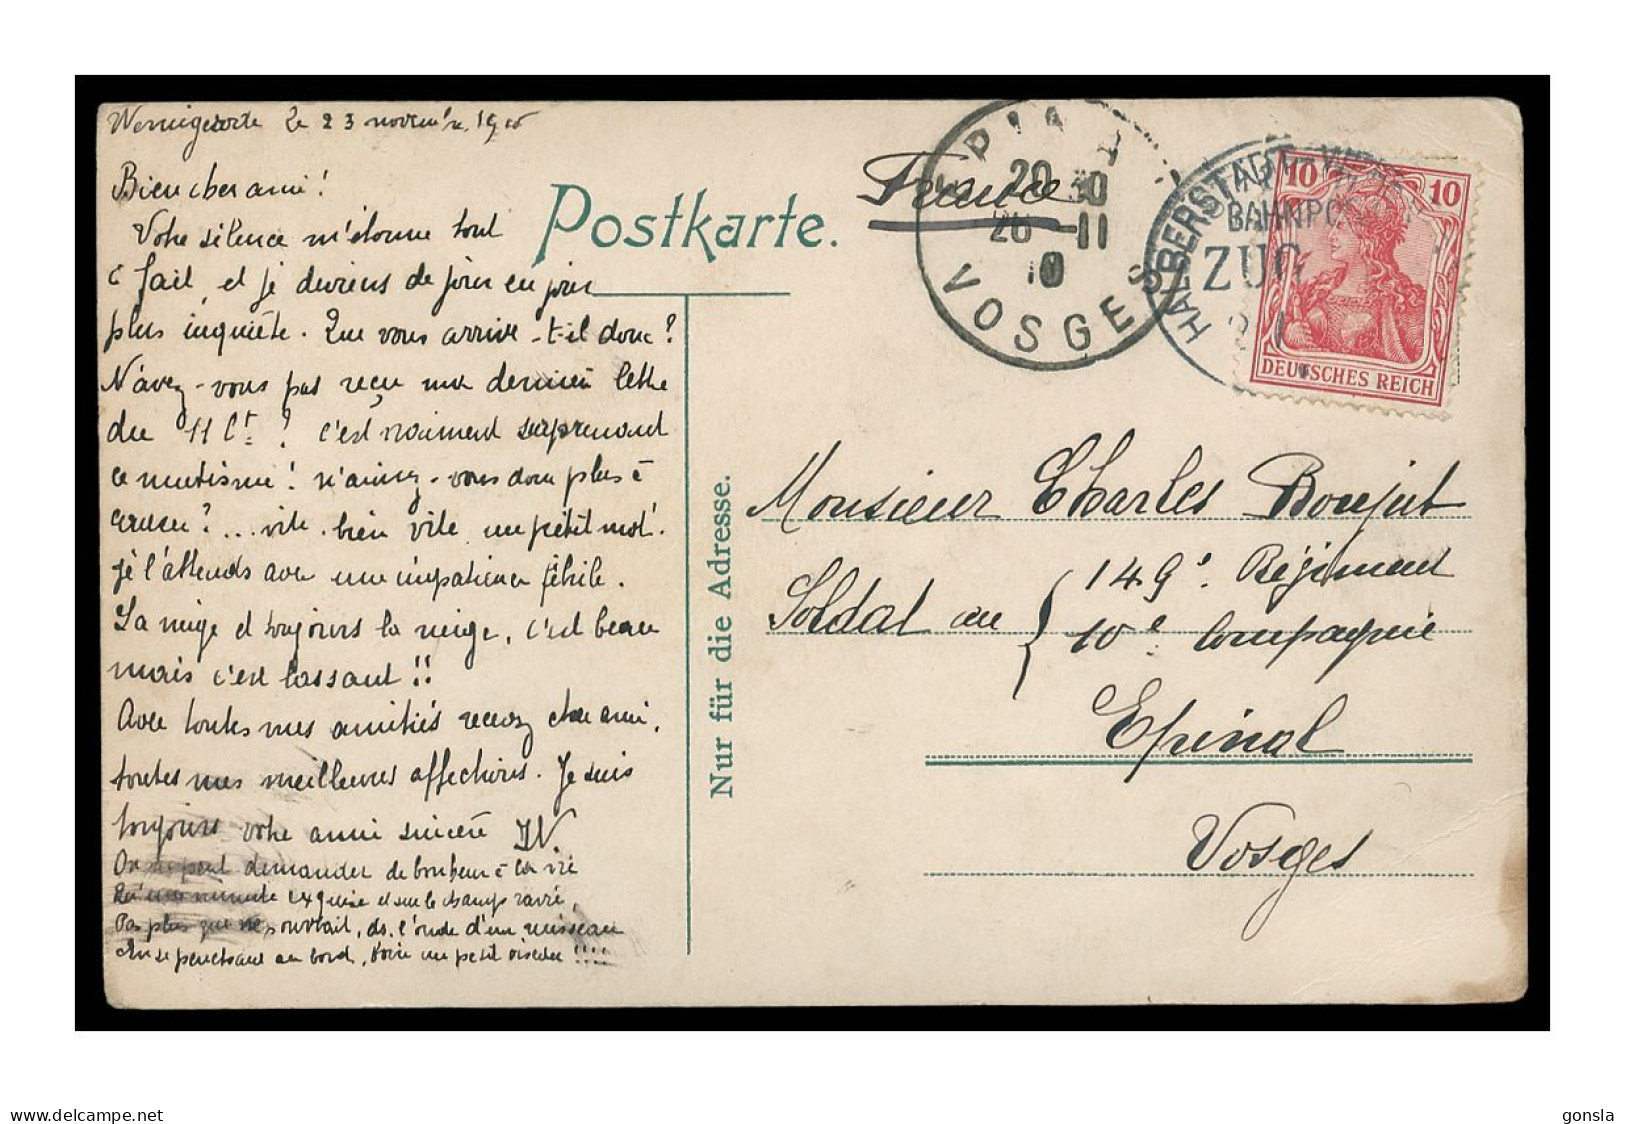 Wernigerode le 23 novembre 1910
Bien cher ami!
Votre silence m'étonne tout
à fait, et je deviens de jour en jour
plus inquiète. Que vous arrive-t-il donc?
N'avez-vous pas reçu ma dernière lettre
du 11 Ct? c'est vraiment surprenant
ce mutisme! n'aimez-vous donc plus à
causer? ... vite, bien vite, un petit mot.
je l'attends avec une impatience fébrile.
La neige et toujours la neige, c'est beau
mais c'est lassant!!
Avec toutes mes amitiés recevez cher ami,
toutes mes meilleures affections. Je suis
toujours votre amie sincère
On ne peut demander de bonheur à la vie
Qu'une minute exquise et sur le champ ravie,
Pas plus que ne pourrait, ds. l'onde d'un ruisseau
En se penchant au bord, boire un petit oiseau!!!!
Postkarte.
Nur für die Adresse.
France
EPINAL
20 30
26 -11
10
VOSGES
HALBERSTADT
BAHNPOST
ZUG
10 10
DEUTSCHES REICH
Monsieur Charles Boujut
Soldat au { 149e. Régiment
10e. Compagnie
Epinal
Vosges
delcampe.net
gonsla